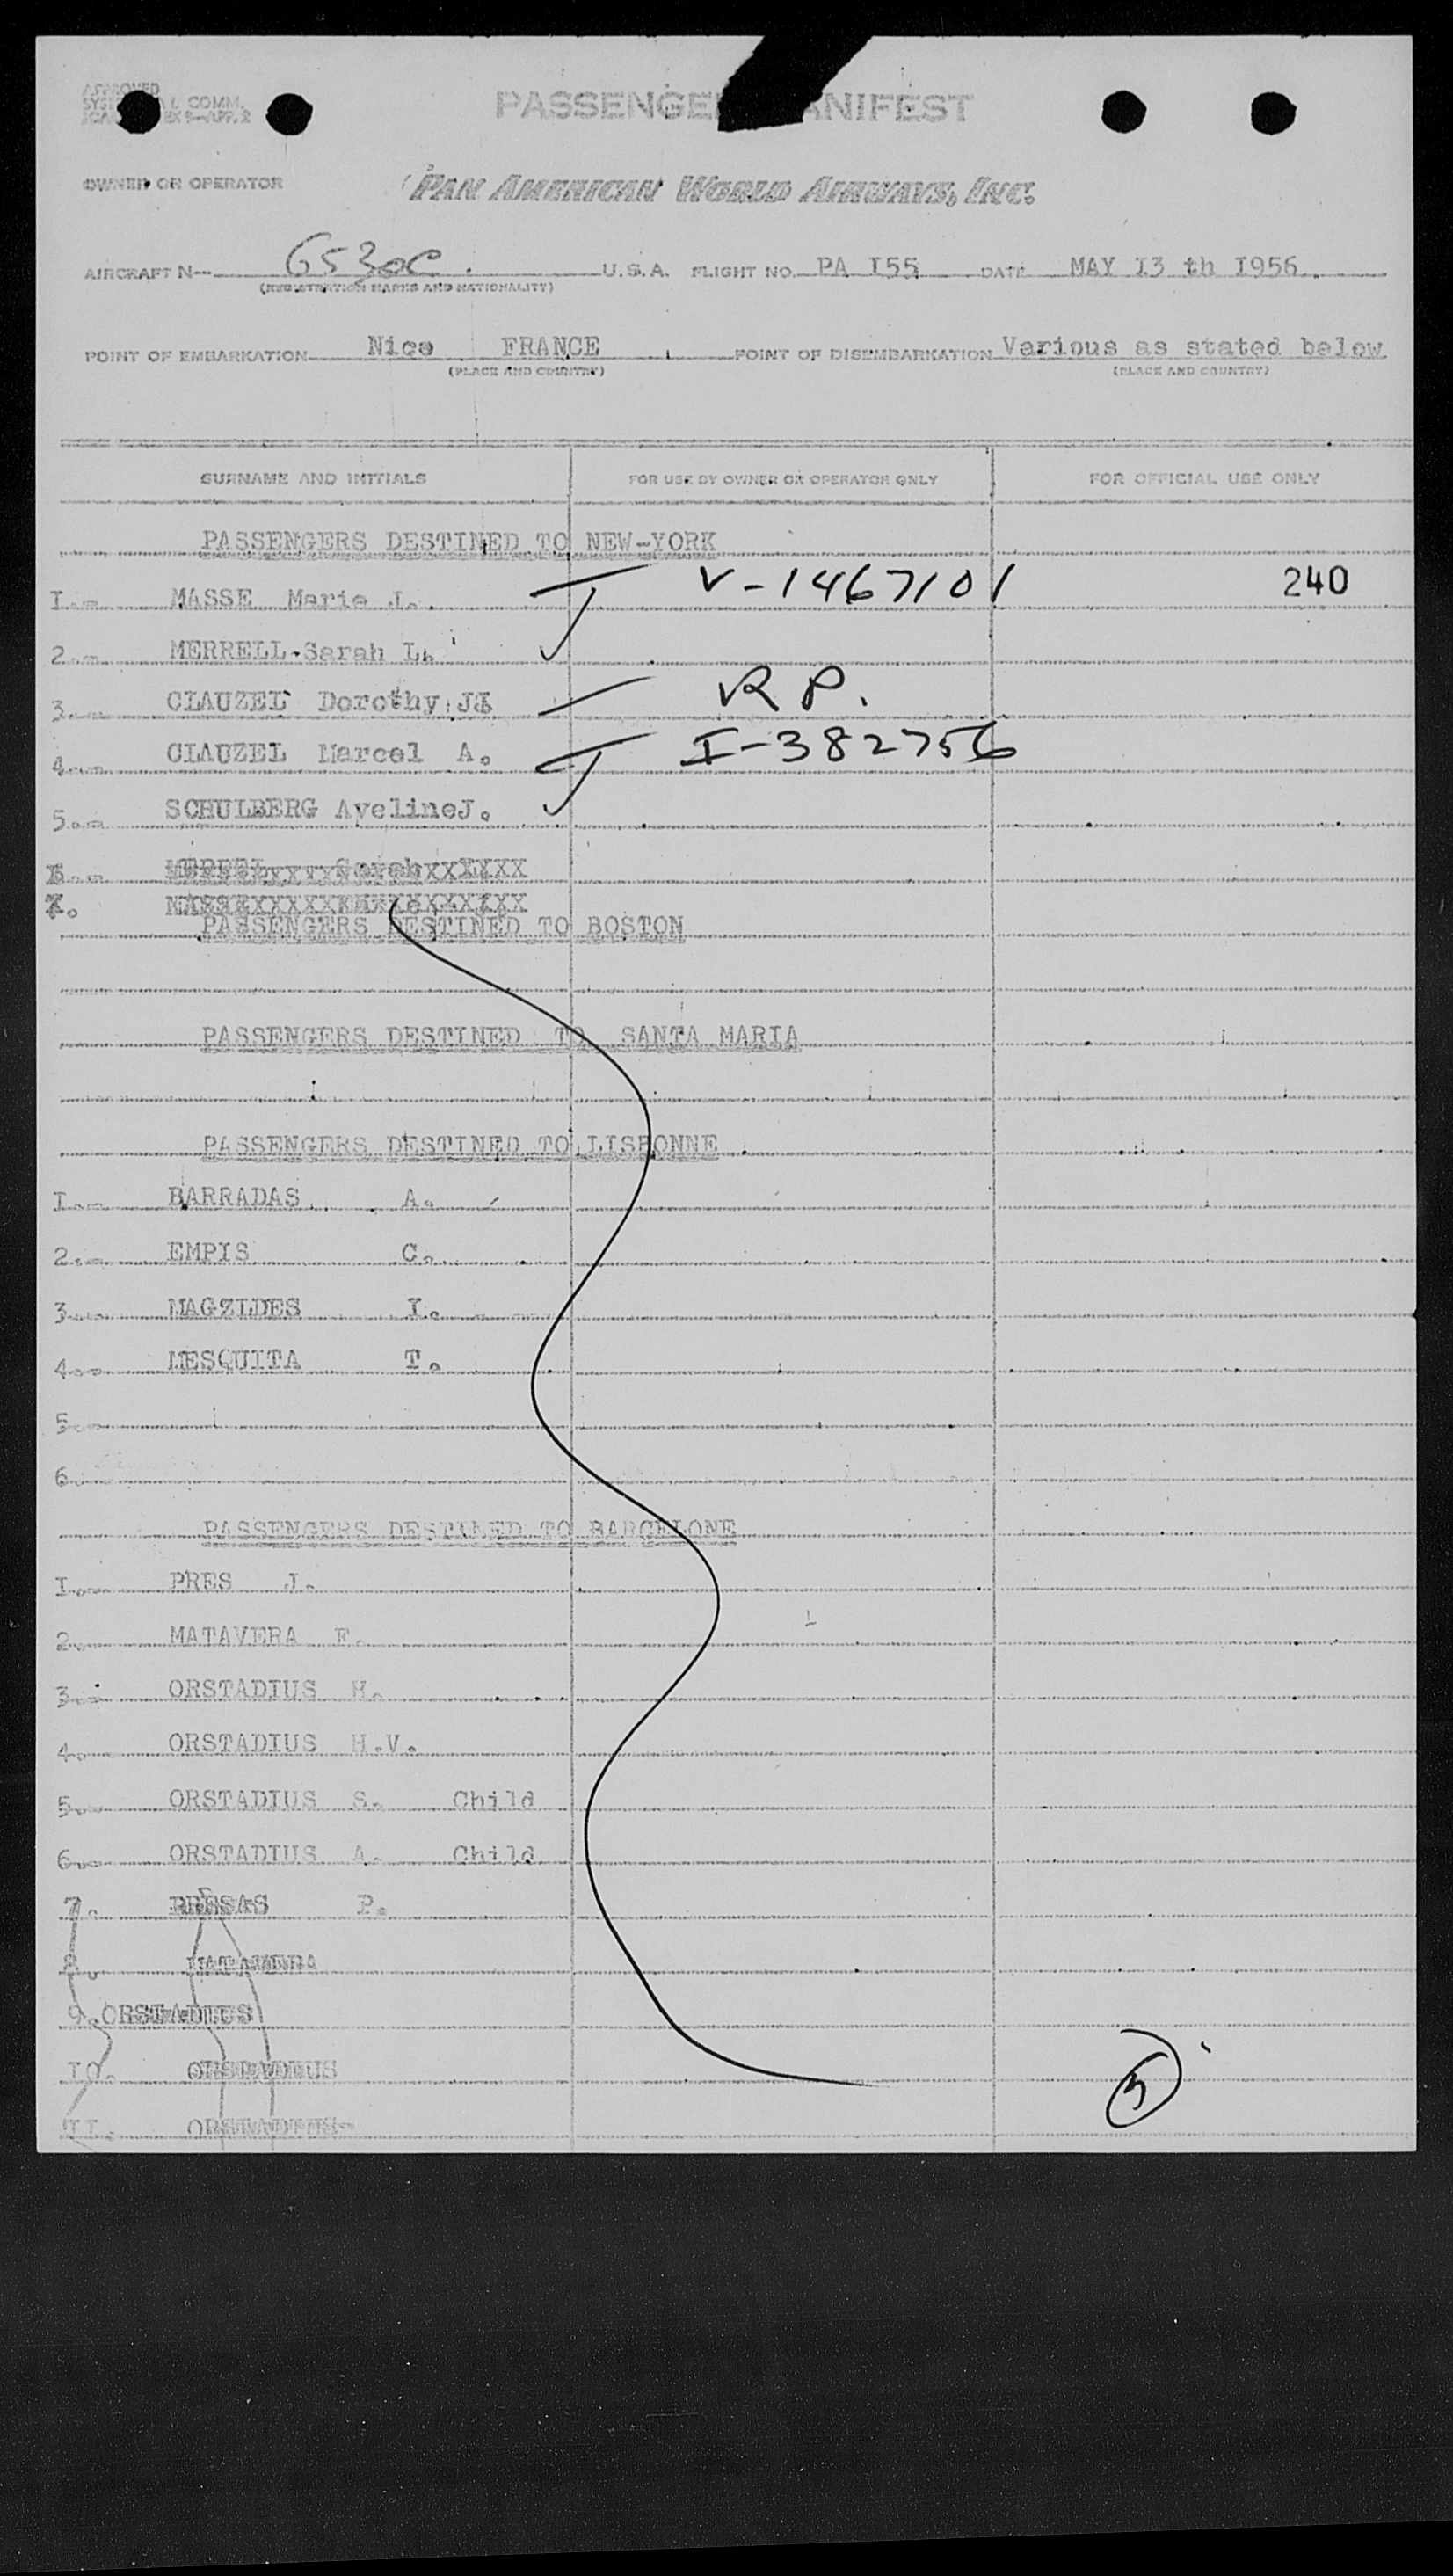 APPROVED
L COMM.
PASSENGE ANIFEST
OWNER OR OPERATOR PAN AMERICAN WORLD AIRWAYS, INC.
AIRCRAFT N— 6530C. U.S.A. FLIGHT NO. PA I55 DATE MAY I3 th I956.
(REGISTRATION MARKS AND NATIONALITY)
POINT OF EMBARKATION Nice FRANCE POINT OF DISEMBARKATION Various as stated below
(PLACE AND COUNTRY) (PLACE AND COUNTRY)
SURNAME AND INITIALS FOR USE BY OWNER OR OPERATOR ONLY FOR OFFICIAL USE ONLY
PASSENGERS DESTINED TO NEW-YORK
I.- MASSE Marie J. V-1467101 240
2.- MERRELL Sarah L.
3.- CLAUZEL Dorothy R P.
4.- CLAUZEL Marcel A. I-382756
5.- SCHULBERG AvelineJ.
PASSENGERS DESTINED TO BOSTON
PASSENGERS DESTINED TO SANTA MARIA
PASSENGERS DESTINED TO LISBONNE
I.- BARRADAS A.
2.- EMPIS C.
3.- MAGZIDES I.
4.- MESQUITA T.
5.-
6.-
PASSENGERS DESTINED TO BARCELONE
I.- PRES J.
2.- MATAVERA F.
3.- ORSTADIUS H.
4.- ORSTADIUS H.V.
5.- ORSTADIUS S. Child
6.- ORSTADIUS A. Child
7. PRESAS P.
8. MATAVERA
9. ORSTADIUS
IO. ORSTADIUS
II. ORSTADIUS
5